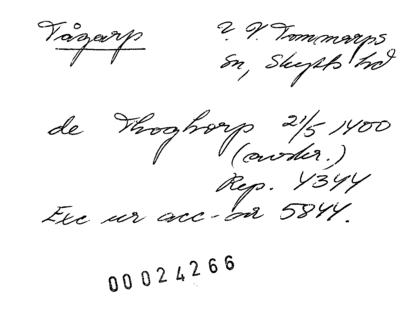 Tågarp ? V. Tommarps
sn, Skytts hd
de Thoghorp 21/5 1400
(avskr.)
Rep. 4344
Exc ur acc-bn 5844.
00024266